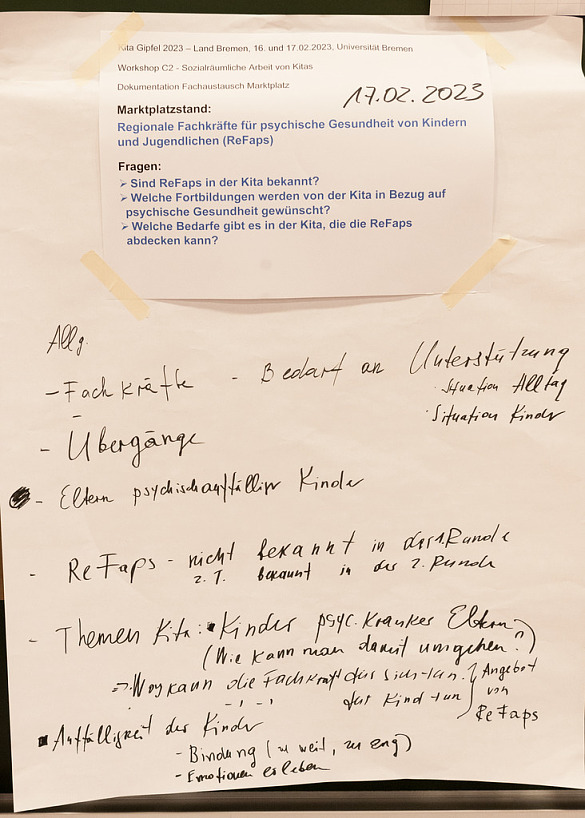 Kita Gipfel 2023 – Land Bremen, 16. und 17.02.2023, Universität Bremen
Workshop C2 - Sozialräumliche Arbeit von Kitas
Dokumentation Fachaustausch Marktplatz
17.02.2023
Marktplatzstand:
Regionale Fachkräfte für psychische Gesundheit von Kindern
und Jugendlichen (ReFaps)
Fragen:
➢ Sind ReFaps in der Kita bekannt?
➢ Welche Fortbildungen werden von der Kita in Bezug auf
psychische Gesundheit gewünscht?
➢ Welche Bedarfe gibt es in der Kita, die die ReFaps
abdecken kann?
Allg.
- Fachkräfte - Bedarf an Unterstützung
· Situation Alltag
· Situation Kinder
- Übergänge
- Eltern psychisch auffälliger Kinder
- ReFaps - nicht bekannt in der 1. Runde
z. T. bekannt in der 2. Runde
- Themen Kita: Kinder psych. kranker Eltern
(Wie kann man damit umgehen?)
=> kann die Fachkraft für sich tun
für Kind tun
Angebot
von
ReFaps
Auffälligkeit der Kinder
- Bindung (zu weit, zu eng)
- Emotionen erleben